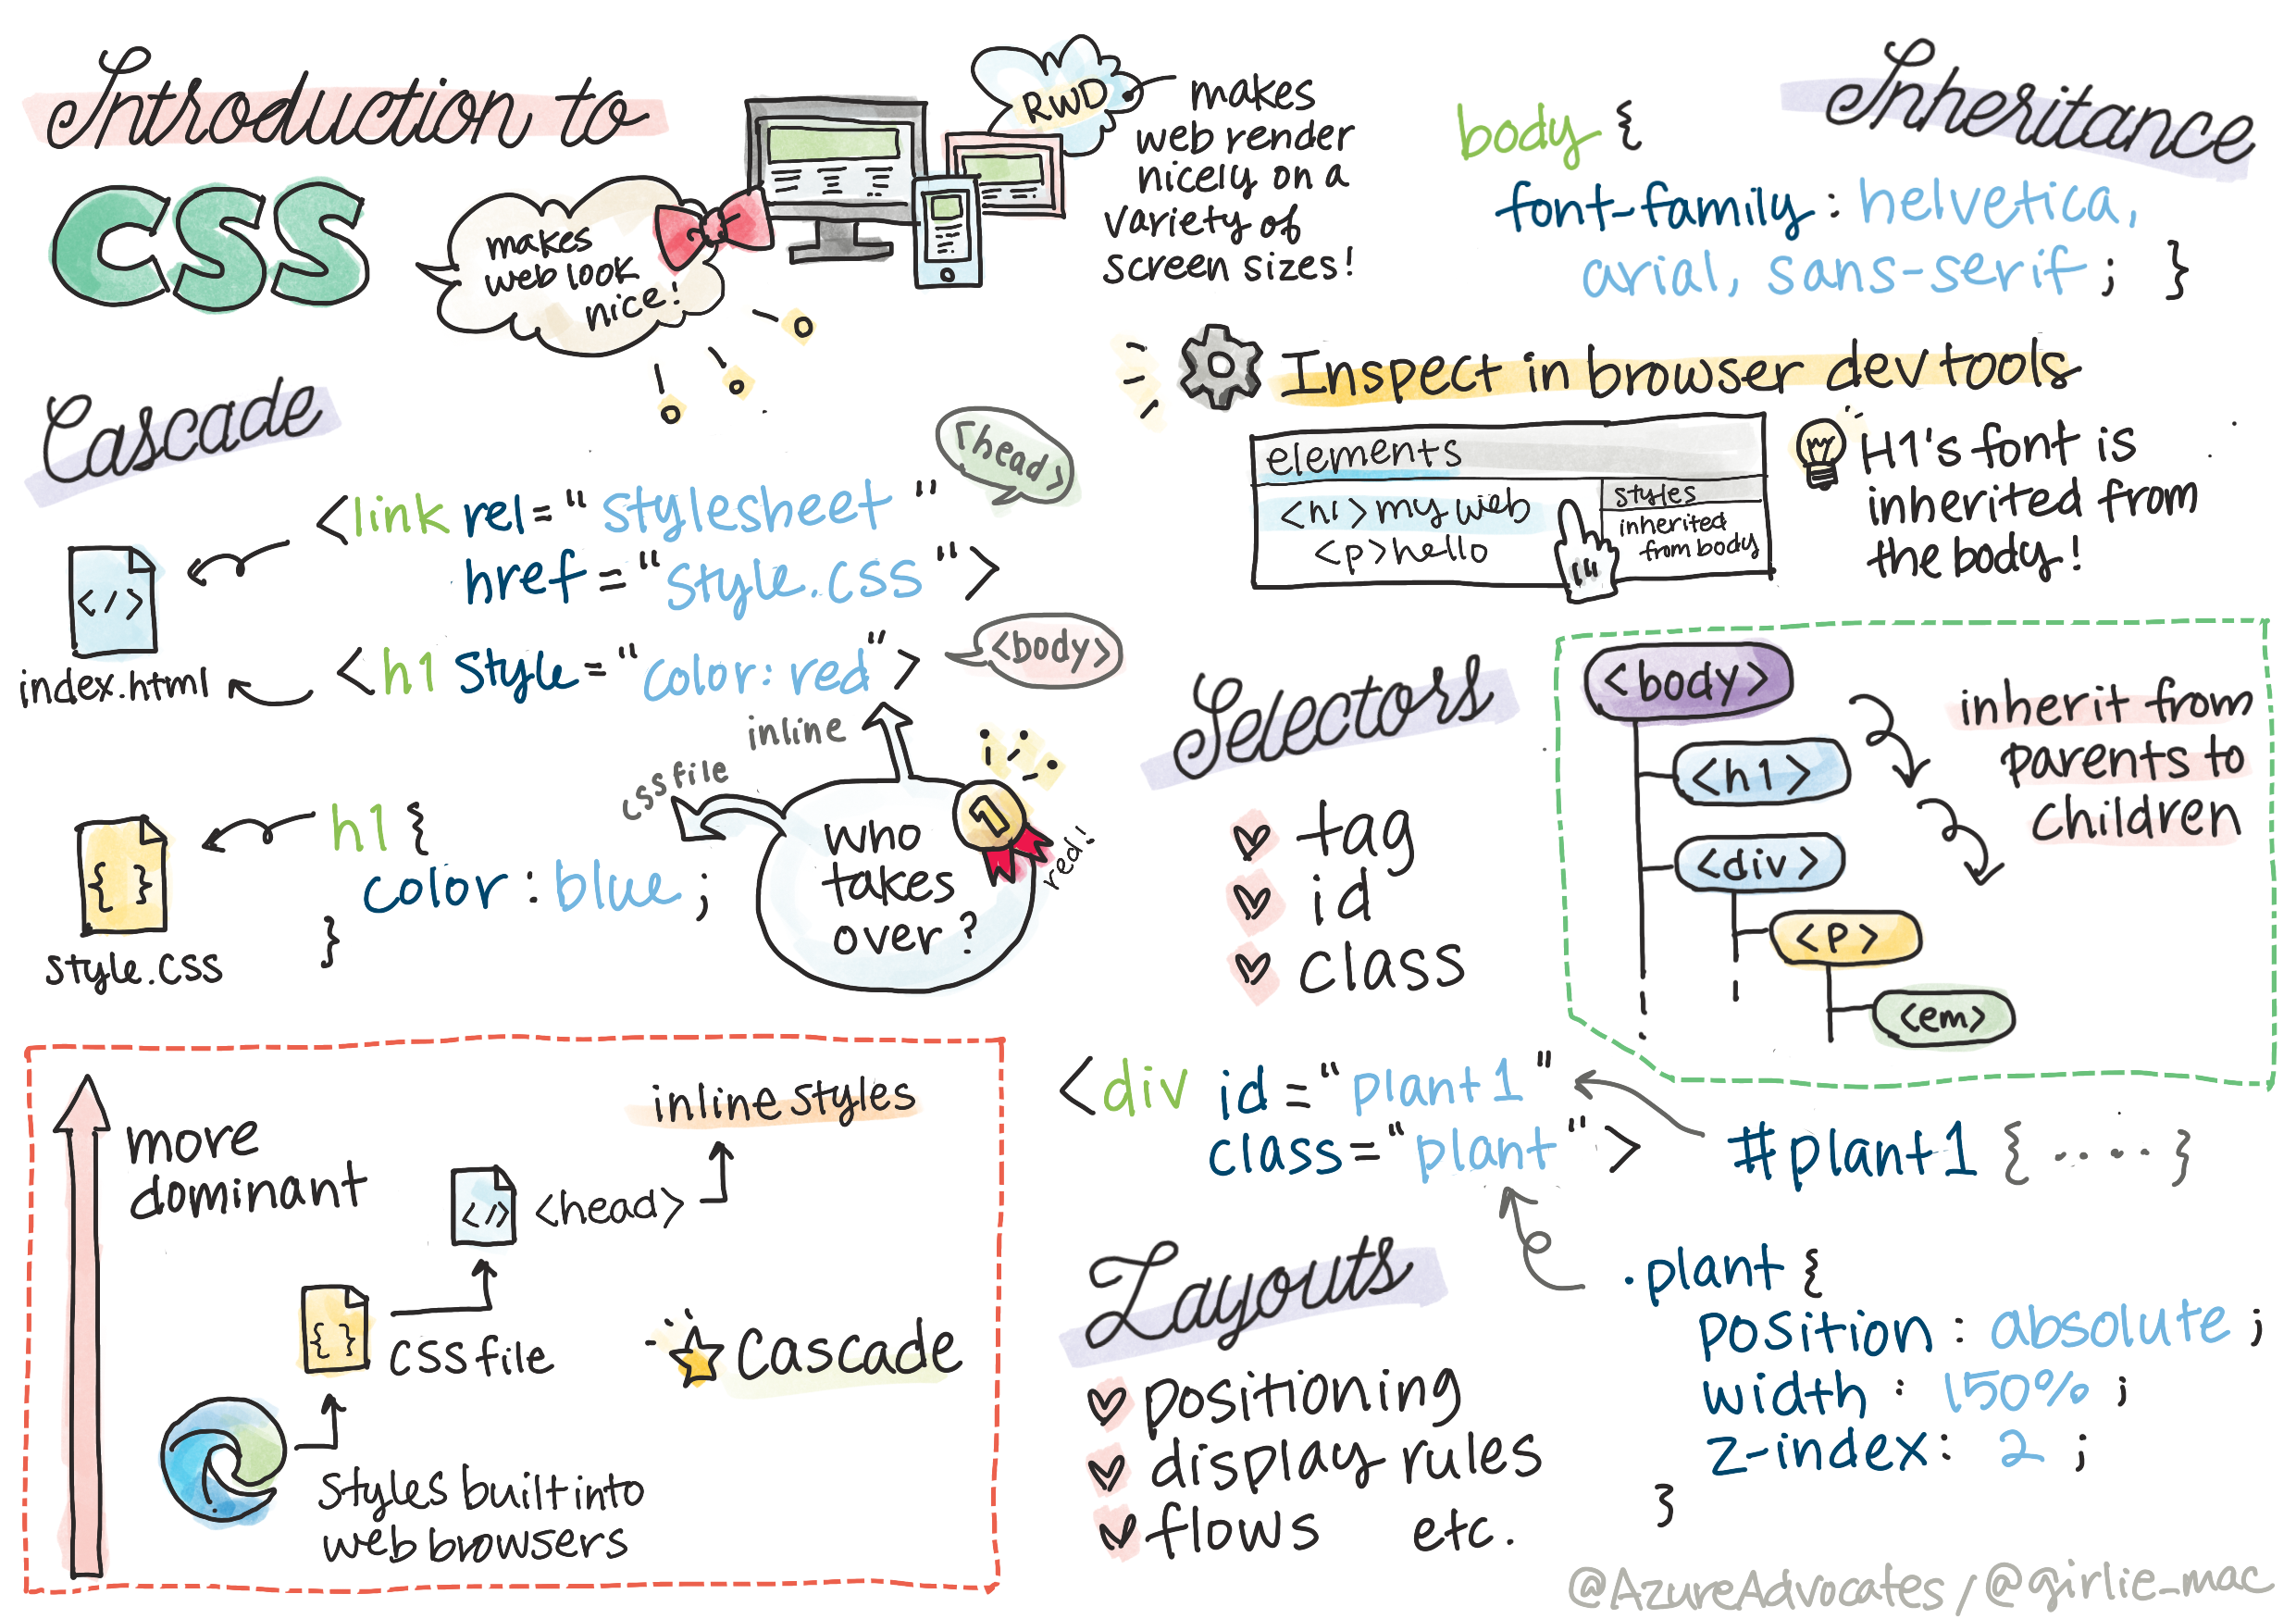 Introduction to
CSS
makes
web look
nice!
RWD
makes
web render
nicely on a
variety of
screen sizes!
Cascade
<head>
<link rel="stylesheet"
href="style.css">
</>
index.html
<h1 style="color: red">
<body>
inline
css file
h1 {
color: blue;
}
{ }
style.css
who
takes
over?
1
red!
more
dominant
inline styles
</>
<head>
{ }
CSS file
Cascade
styles built into
web browsers
Inheritance
body {
font-family: helvetica,
arial, sans-serif; }
Inspect in browser dev tools
elements
<h1> my web
<p> hello
styles
inherited
from body
H1's font is
inherited from
the body!
Selectors
tag
id
class
<body>
<h1>
<div>
<p>
<em>
inherit from
parents to
children
<div id="plant1"
class="plant">
#plant1 {·····}
.plant {
position: absolute;
width: 150%;
z-index: 2;
}
Layouts
positioning
display rules
flows etc.
@AzureAdvocates / @girlie_mac